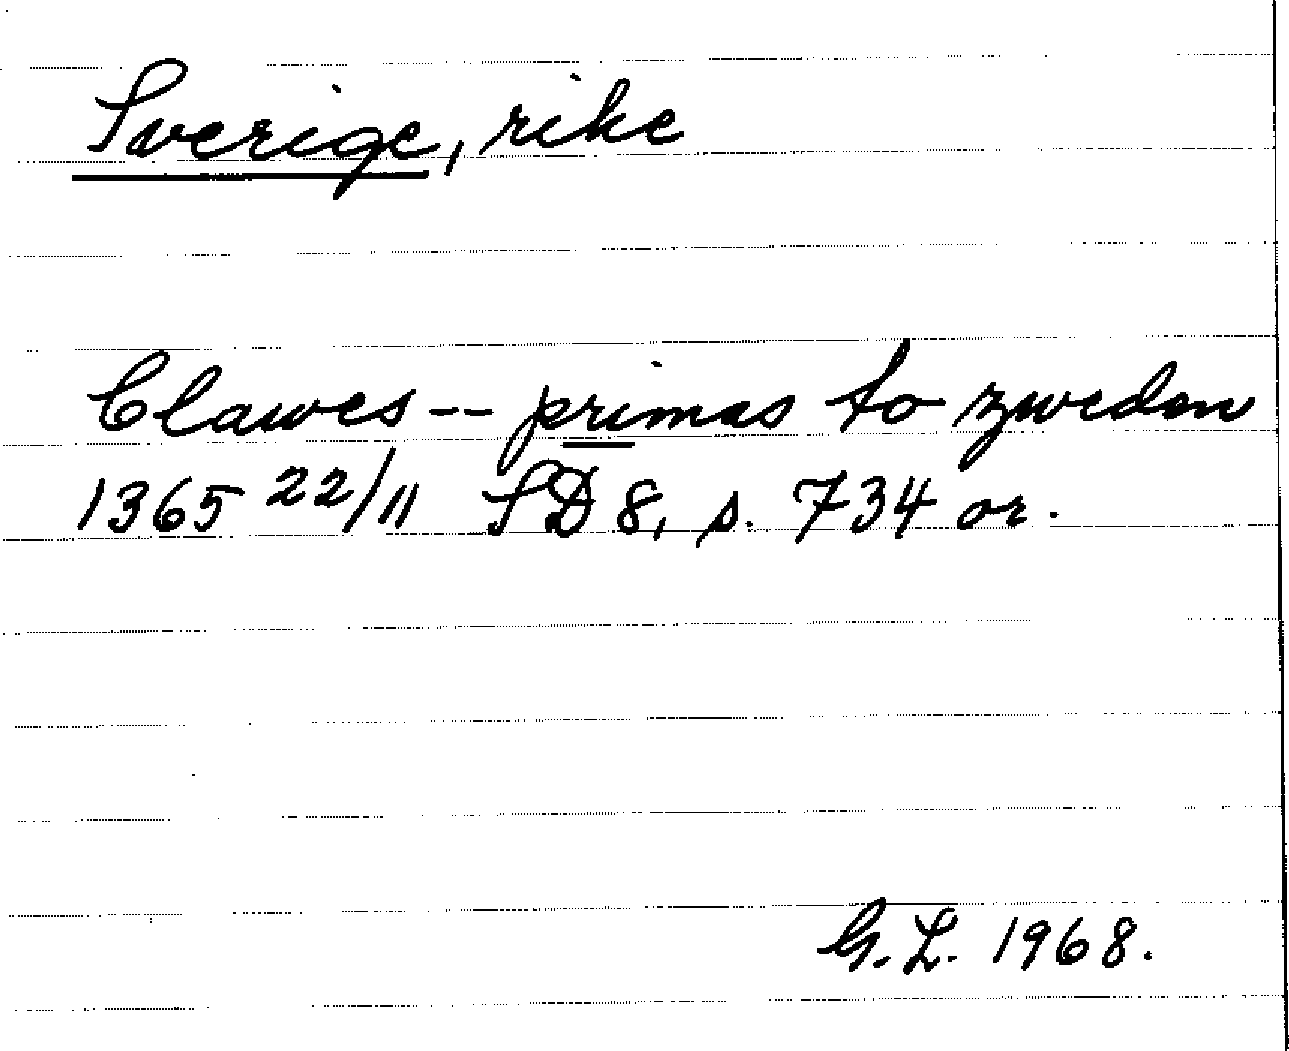 Sverige, rike
Clawes -- primas to zweden
1365 22/11 SD 8, s. 734 or.
G. L. 1968.